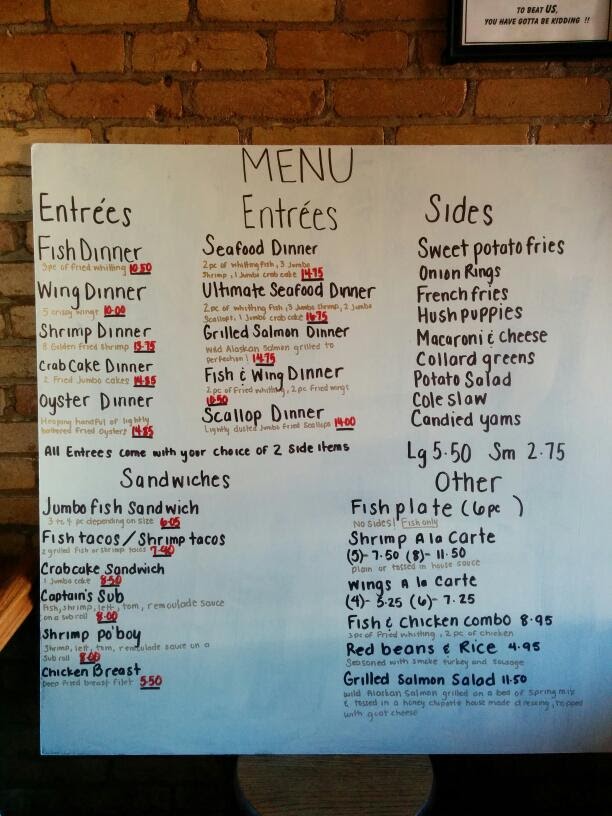 TO BEAT US,
YOU HAVE GOTTA BE KIDDING !!
MENU
Entrées
Fish Dinner
3pc of fried whiting 10.50
Wing Dinner
5 crispy wings 10.00
Shrimp Dinner
8 Golden fried shrimp 13.75
Crab Cake Dinner
2 fried Jumbo cakes 14.85
Oyster Dinner
Heaping handful of lightly
battered fried oysters 14.85
Entrées
Seafood Dinner
2 pc of whitting fish, 3 Jumbo
Shrimp, 1 Jumbo crab cake 14.75
Ultimate Seafood Dinner
2 pc of whitting fish, 3 Jumbo shrimp, 2 Jumbo
Scallops, 1 Jumbo crab cake 16.75
Grilled Salmon Dinner
Wild Alaskan Salmon grilled to
perfection! 14.75
Fish & Wing Dinner
2 pc of fried whitting, 2 pc fried wings
10.50
Scallop Dinner
Lightly dusted Jumbo fried Scallops 14.00
All Entrees come with your choice of 2 Side items
Sides
Sweet potato fries
Onion Rings
French fries
Hush puppies
Macaroni & Cheese
Collard greens
Potato Salad
Cole slaw
Candied yams
Lg 5.50 Sm 2.75
Sandwiches
Jumbo fish Sandwich
3 to 4 pc depending on size 6.05
Fish tacos/Shrimp tacos
2 grilled fish or shrimp tacos
Crabcake Sandwich
1 Jumbo cake 8.50
Captain's Sub
Fish, shrimp, lett, tom, remoulade sauce
on a sub roll 8.00
Shrimp po'boy
Shrimp, lett, tom, remoulade sauce on a
Sub roll 8.00
Chicken Breast
Deep fried breast filet 5.50
Other
Fish plate (6pc )
No sides! Fish only
Shrimp A la Carte
(5)- 7.50 (8)- 11.50
plain or tossed in house sauce
Wings A la Carte
(4)- 5.25 (6)- 7.25
Fish & Chicken combo 8.95
3pc of fried whitting, 2 pc of chicken
Red beans & Rice 4.95
Seasoned with smoke turkey and sausage
Grilled Salmon Salad 11.50
Wild Alaskan Salmon grilled on a bed of spring mix
& tossed in a honey chipotle house made dressing, topped
with goat cheese